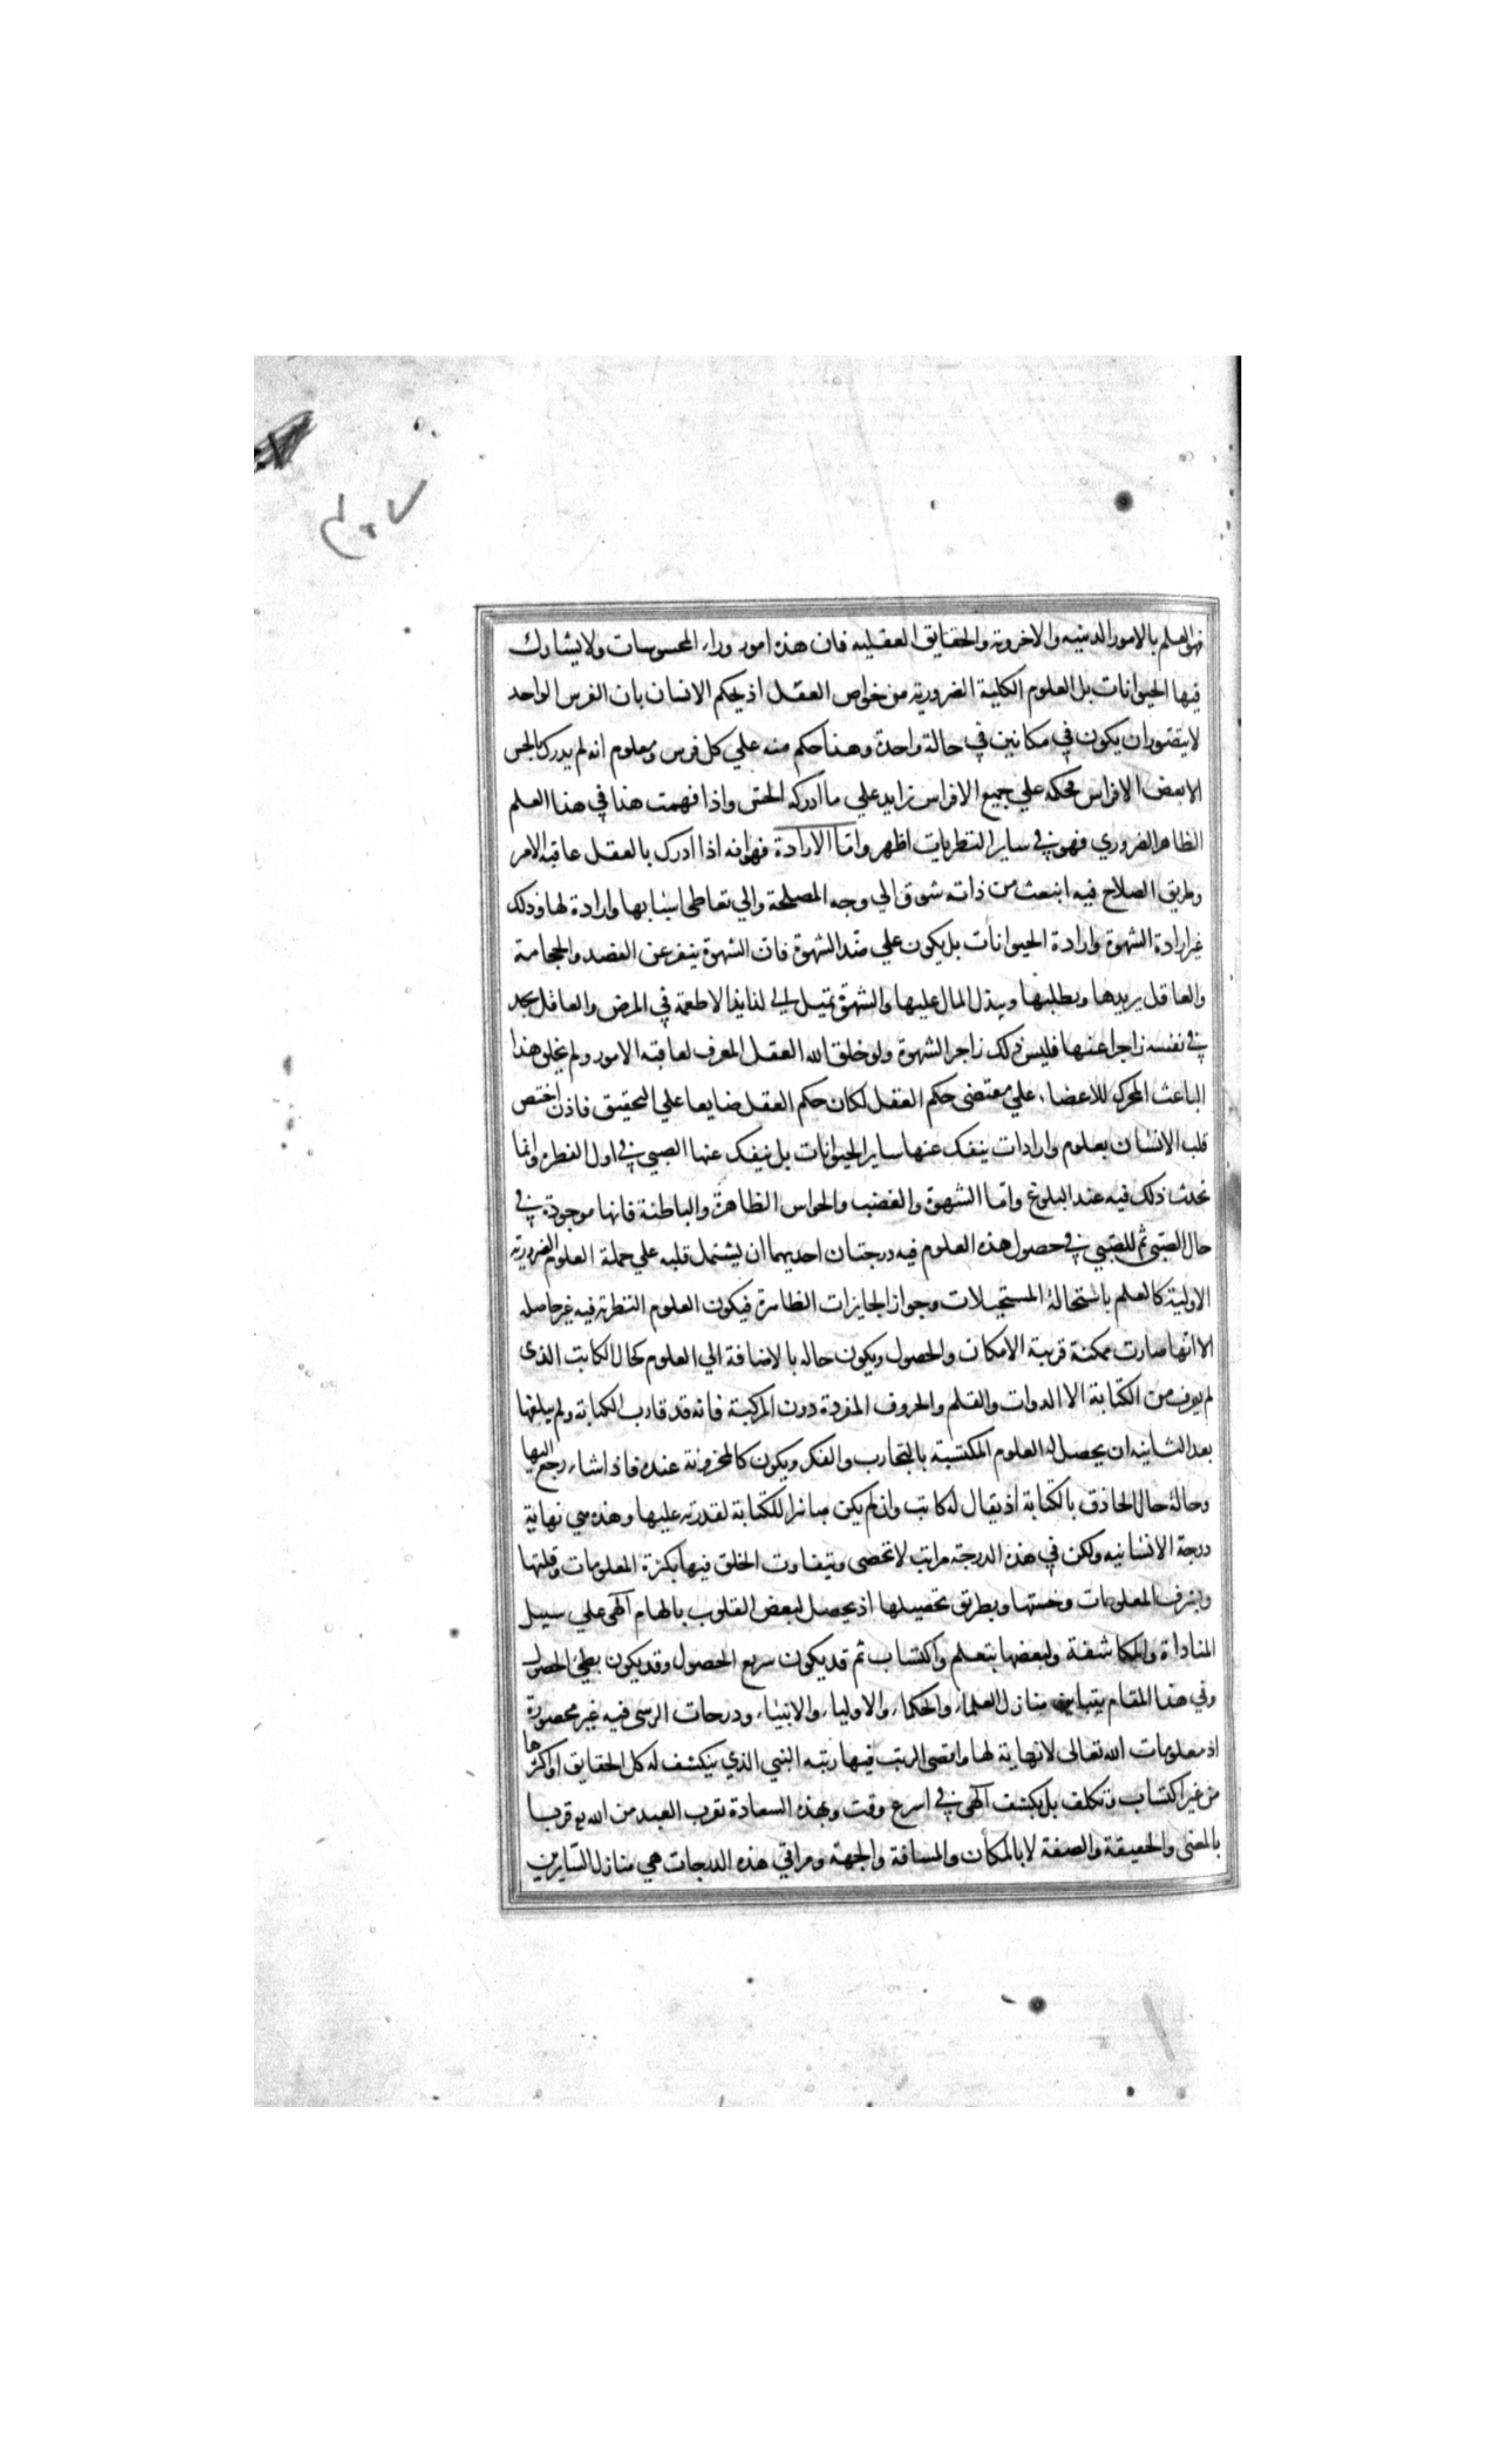 فهو العلم بالامور الدينيه والاخرويه والحقايق العقليه فان هذه امور وراء المحسوسات ولا يشارك
فيها الحيوانات بل العلوم الكلية الضرورية من خواص العقل اذ يحكم الانسان بان الفرس الواحد
لا يتصور ان يكون في مكانين في حالة واحدة وهذا حكم منه علي كل فرس ومعلوم انه لم يدرك بالحس
الا بعض الافراس فحكمه علي جميع الافراس زايد علي ما ادركه الحس واذا فهمت هذا في هذا العلم
الظاهر الضروري فهو في ساير النظريات اظهر واما الارادة فهو انه اذا ادرك بالعقل عاقبة الامر
وطريق الصلاح فيه انبعث من ذاته شوق الي وجه المصلحة والي تعاطي اسبابها وارادة لها وذلك
غير ارادة الشهوة وارادة الحيوانات بل يكون علي ضد الشهوة فان الشهوة ينفر عن الفصد والحجامة
والعاقل يريدها ويطلبها ويبذل المال عليها والشهوة تميل الي لذايذ الاطعمة في المرض والعاقل يجد
في نفسه زاجرا عنها فليس ذلك زاجر الشهوة ولو خلق الله العقل المعرف لعاقبة الامور ولم يخلق هذا
الباعث المحرك للاعضاء علي مقتضى حكم العقل لكان حكم العقل ضايعا علي التحقيق فاذن اختص
قلب الانسان بعلوم وارادات ينفك عنها ساير الحيوانات بل ينفك عنها الصبي في اول الفطرة وانما
تحدث ذلك فيه عند البلوغ واما الشهوة والغضب والحواس الظاهرة والباطنة فانها موجودة في
حال الصبى ثم للصبي في حصول هذه العلوم فيه درجتان احديهما ان يشتمل قلبه علي جملة العلوم الضرورية
الاولية كالعلم باستحالة المستحيلات وجواز الجايزات الظاهرة فيكون العلوم النظرية فيه غير حاصله
الا انها صارت ممكنة قريبة الامكان والحصول ويكون حاله بالاضافة الي العلوم كحال الكاتب الذى
لم يعرف من الكتابة الا الدوات والقلم والحروف المفردة دون المركبة فانه قد قارب الكتابة ولم يبلغها
بعد الثانيه ان يحصل له العلوم المكتسبة بالتجارب والفكر ويكون كالمخزونة عنده فاذا شاء رجع اليها
وحاله حال الحاذق بالكتابة اذ يقال له كاتب وان لم يكن مباشرا للكتابة لقدرته عليها وهذه هي نهاية
درجة الانسانيه ولكن في هذه الدرجة مراتب لا تحصى ويتفاوت الخلق فيها بكثرة المعلومات وقلتها
وبشرف المعلومات وخستها وبطريق تحصيلها اذ يحصل لبعض القلوب بالهام آلهى علي سبيل
المناداة والمكاشفة ولبعضها بتعلم واكتساب ثم قد يكون سريع الحصول وقد يكون بطيء الحصول
وفي هذا المقام يتباين منازل العلماء والحكماء والاولياء والانبياء ودرجات الرسى فيه غير محصورة
اذ معلومات الله تعالى لا نهاية لها واقصى الرتب فيها رتبه النبي الذي ينكشف له كل الحقايق او اكثرها
من غير اكتساب وتكلف بل بكشف آلهى في اسرع وقت وبهذه السعادة تقرب العبد من الله قربا
بالمعنى والحقيقة والصفة لا بالمكان والمسافة والجهة ومراقي هذه الدرجات هي منازل السايرين